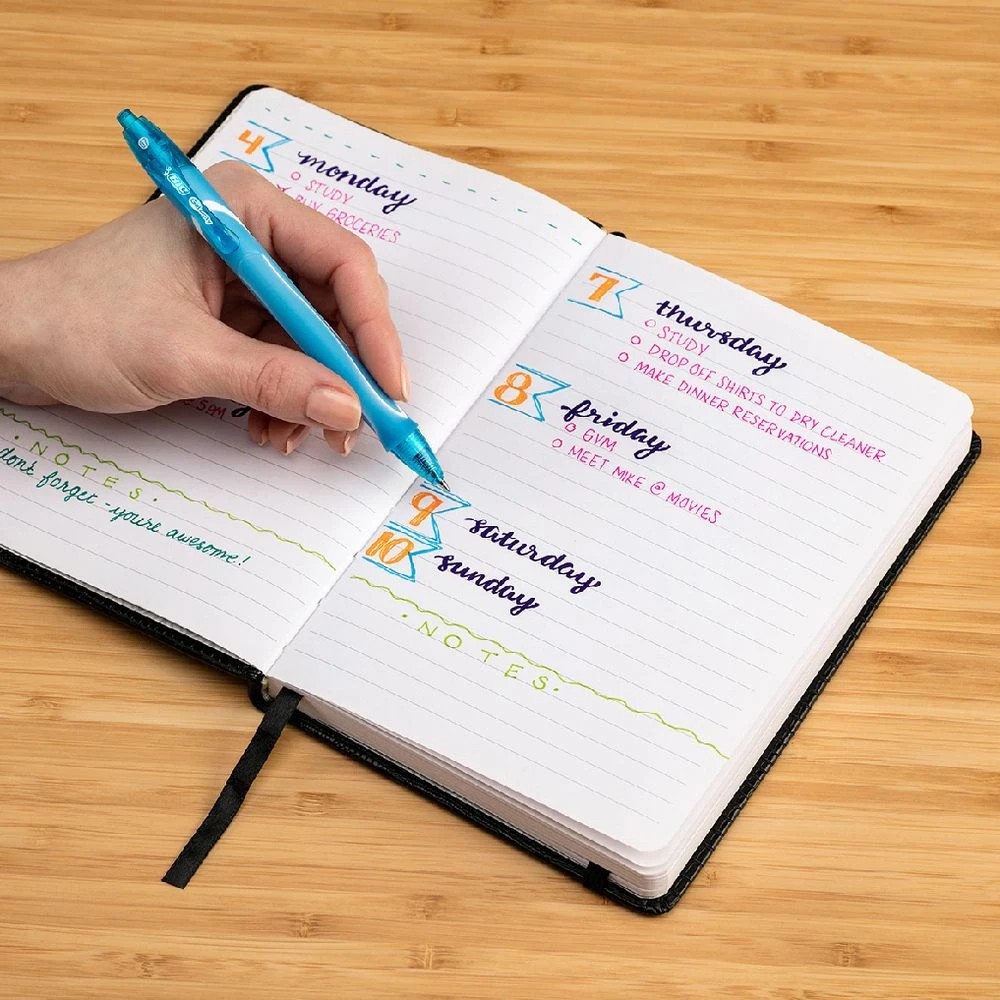 4
monday
STUDY
BUY GROCERIES
5PM
·NOTES·
don't forget - you're awesome!
7
thursday
STUDY
DROP OFF SHIRTS TO DRY CLEANER
MAKE DINNER RESERVATIONS
8
friday
GYM
MEET MIKE @ MOVIES
9
saturday
10
sunday
·NOTES·
BIC